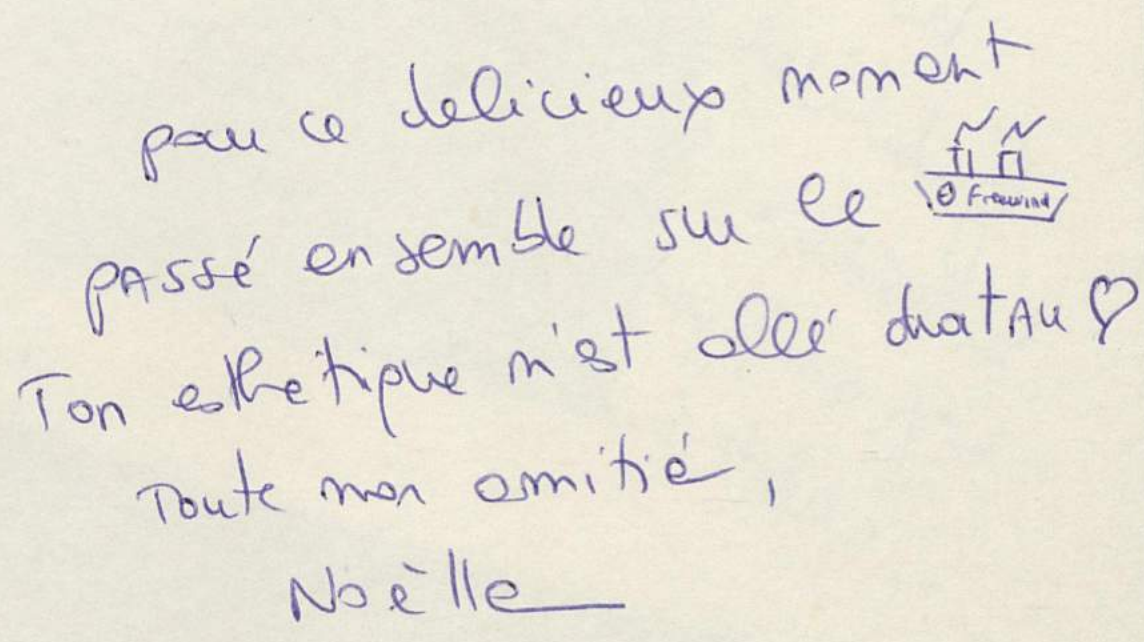 pour ce delicieux moment
passé ensemble sur le Freewind
Ton esthetique m'est allé droit au ♡
Toute mon amitié,
Noèlle